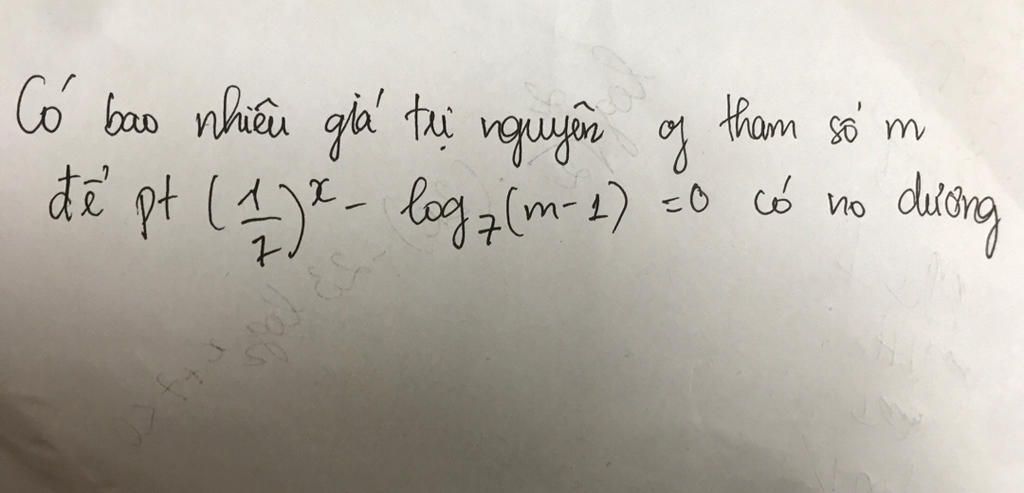 Có bao nhiêu giá trị nguyên of tham số m
để pt (1/7)^x - log_7(m-1) =0 có no dương